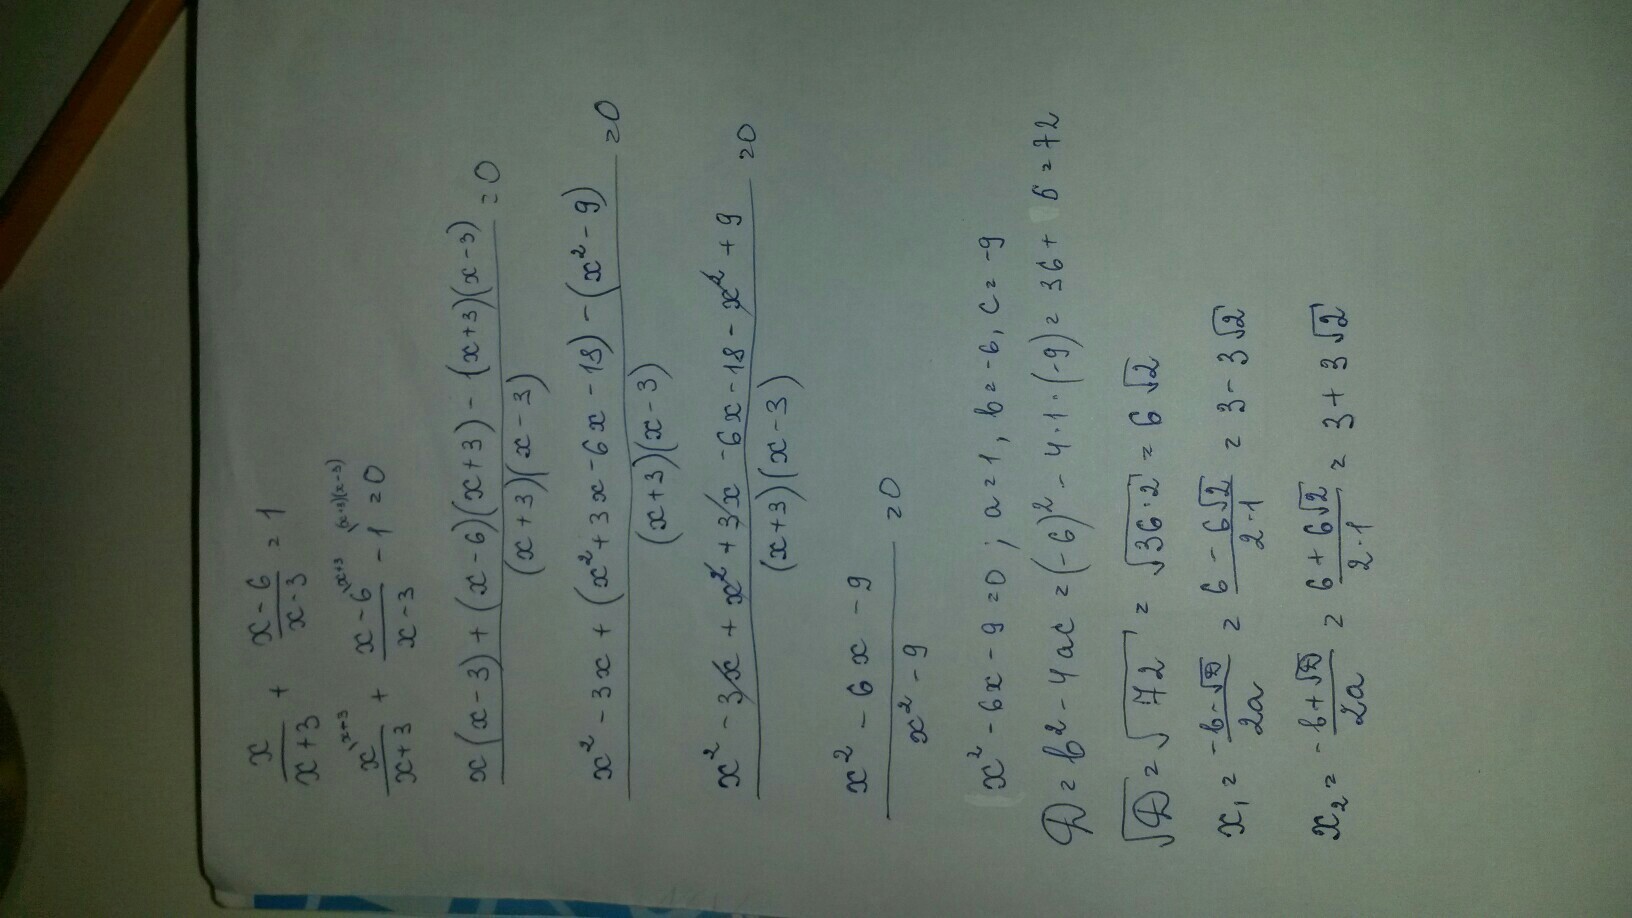 x/(x+3) + (x-6)/(x-3) = 1
x^{\x-3}/(x+3) + (x-6)^{\x+3}/(x-3) - 1^{\(x+3)(x-3)} = 0
(x(x-3) + (x-6)(x+3) - (x+3)(x-3))/((x+3)(x-3)) = 0
(x² - 3x + (x² + 3x - 6x - 18) - (x² - 9))/((x+3)(x-3)) = 0
(x² - 3x + x² + 3x - 6x - 18 - x² + 9)/((x+3)(x-3)) = 0
(x² - 6x - 9)/(x² - 9) = 0
x² - 6x - 9 = 0; a = 1, b = -6, c = -9
D = b² - 4ac = (-6)² - 4·1·(-9) = 36 + 6 = 72
√D = √72 = √36·2 = 6√2
x₁ = (-b-√D)/2a = (6 - 6√2)/(2·1) = 3 - 3√2
x₂ = (-b+√D)/2a = (6 + 6√2)/(2·1) = 3 + 3√2